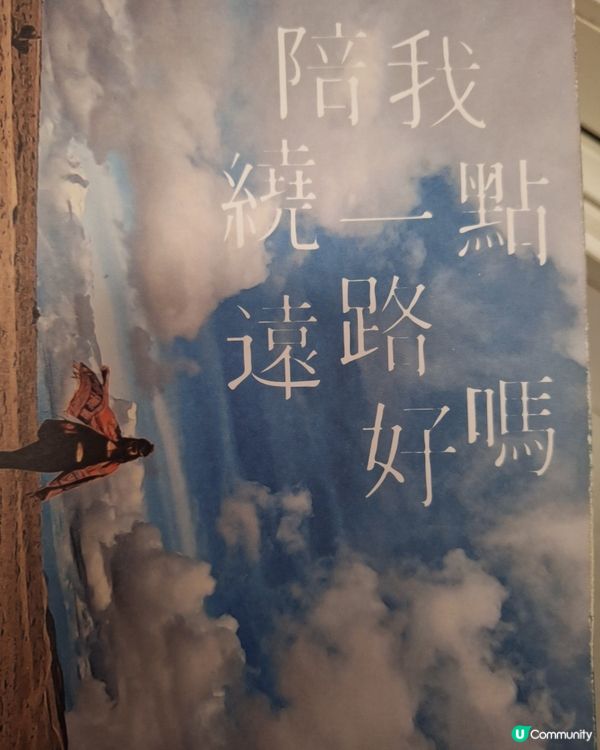 陪我
繞一點
遠路
好嗎
U Community